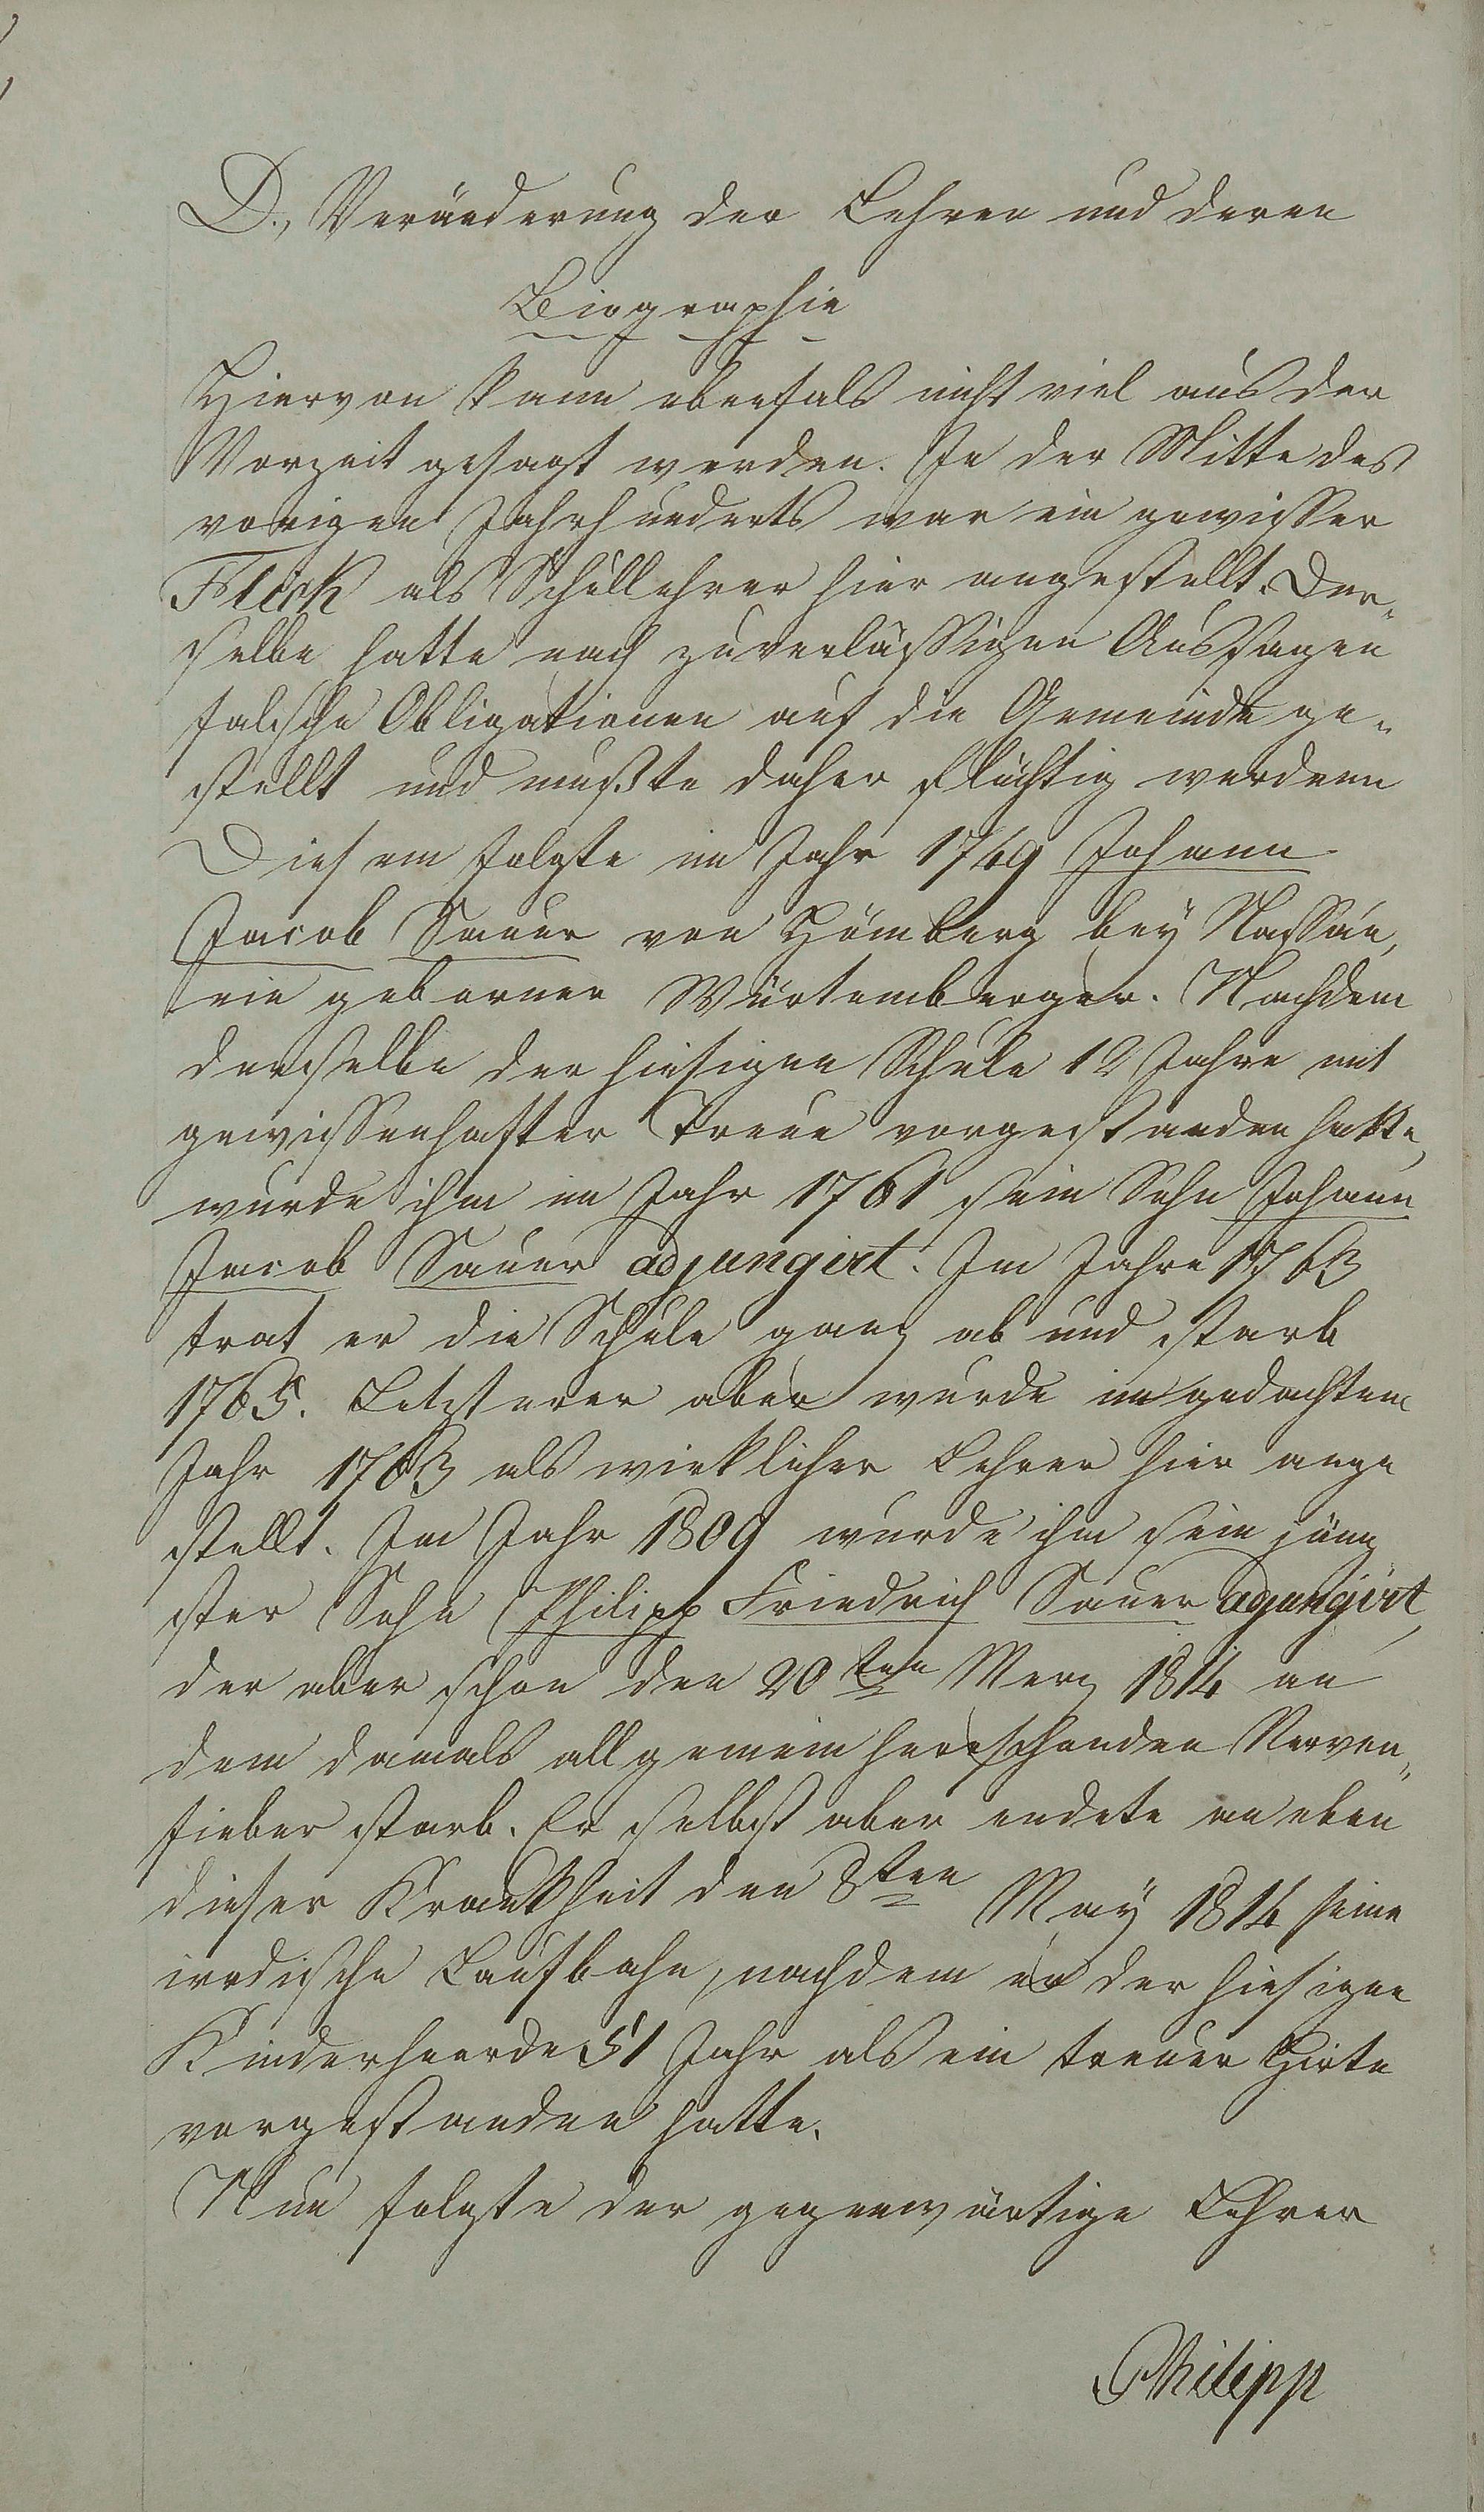 D., Veränderung der Lehrer und deren
Biographie
Hiervon kann ebenfals nicht viel aus der
Vorzeit gesagt werden. In der Mitte des
vorigen Jahrhunderts war ein gewisser
Flick als Schullehrer hier angestellt. Der-
selbe hatte nach zuverlässigen Aussagen
falsche Obligationen auf die Gemeinde ge-
stellt und mußte daher flüchtig werdenn
Diesem folgte im Jahr 1749 Johann
Jacob Sauer von Hömberg bey Nassau,
ein geborner Würtemberger. Nachdem
derselbe der hiesigen Schule 12 Jahre mit
gewissenhafter Treue vorgestanden hatte,
wurde ihm im Jahr 1761 sein Sohn Johann
Jacob Sauer adjungirt. Im Jahre 1763
trat er die Schule ganz ab und starb
1765. Letzterer aber wurde im gedachten
Jahr 1763 als wirklicher Lehrer hier ange
stellt. Im Jahr 1809 wurde ihm sein jüng
ster Sohn Philipp Friedrich Sauer adjungirt,
der aber schon den 20ten Merz 1814 an
dem damals allgemein herrschenden Nerven-
fieber starb. Er selbst aber endete an eben
dieser Krankheit den 8ten May 1814 seine
irrdische Laufbahn, nachdem er der hiesigen
Kinderheerde 51 Jahr als ein treuer Hirte
vorgestanden hatte.
Nun folgte der gegenwärtige Lehrer
Philipp